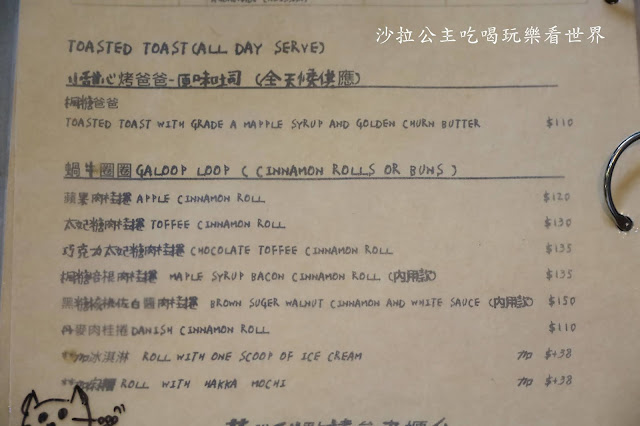 TOASTED TOAST(ALL DAY SERVE)
沙拉公主吃喝玩樂看世界
小甜心烤爸爸-原味吐司 (全天候供應)
楓糖爸爸
TOASTED TOAST WITH GRADE A MAPPLE SYRUP AND GOLDEN CHURN BUTTER $110
蝸牛圈圈 GALOOP LOOP ( CINNAMON ROLLS OR BUNS )
蘋果肉桂捲 APPLE CINNAMON ROLL $120
太妃糖肉桂捲 TOFFEE CINNAMON ROLL $130
巧克力太妃糖肉桂捲 CHOCOLATE TOFFEE CINNAMON ROLL $135
楓糖培根肉桂捲 MAPLE SYRUP BACON CINNAMON ROLL (內用款) $135
黑糖核桃佐白醬肉桂捲 BROWN SUGER WALNUT CINNAMON AND WHITE SAUCE (內用款) $150
丹麥肉桂捲 DANISH CINNAMON ROLL $110
**加冰淇淋 ROLL WITH ONE SCOOP OF ICE CREAM 加 $+38
** ROLL WITH HAKKA MOCHI 加 $+38